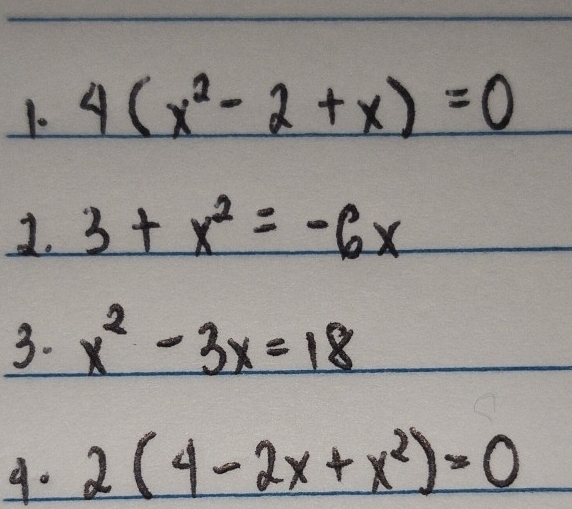 1. 4(x² - 2 + x) = 0
2. 3 + x² = -6x
3. x² - 3x = 18
4. 2(4 - 2x + x²) = 0